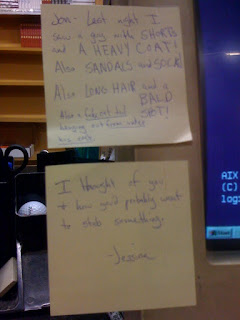 Jon- Last night I
saw a guy with SHORTS
and A HEAVY COAT!
Also SANDALS and SOCKS!
Also LONG HAIR and a
BALD
SPOT!
Also a fake
hanging out from under
his coat
I thought of you
+ how you'd probably want
to stab something.
-Jessica
AIX
(C)
log